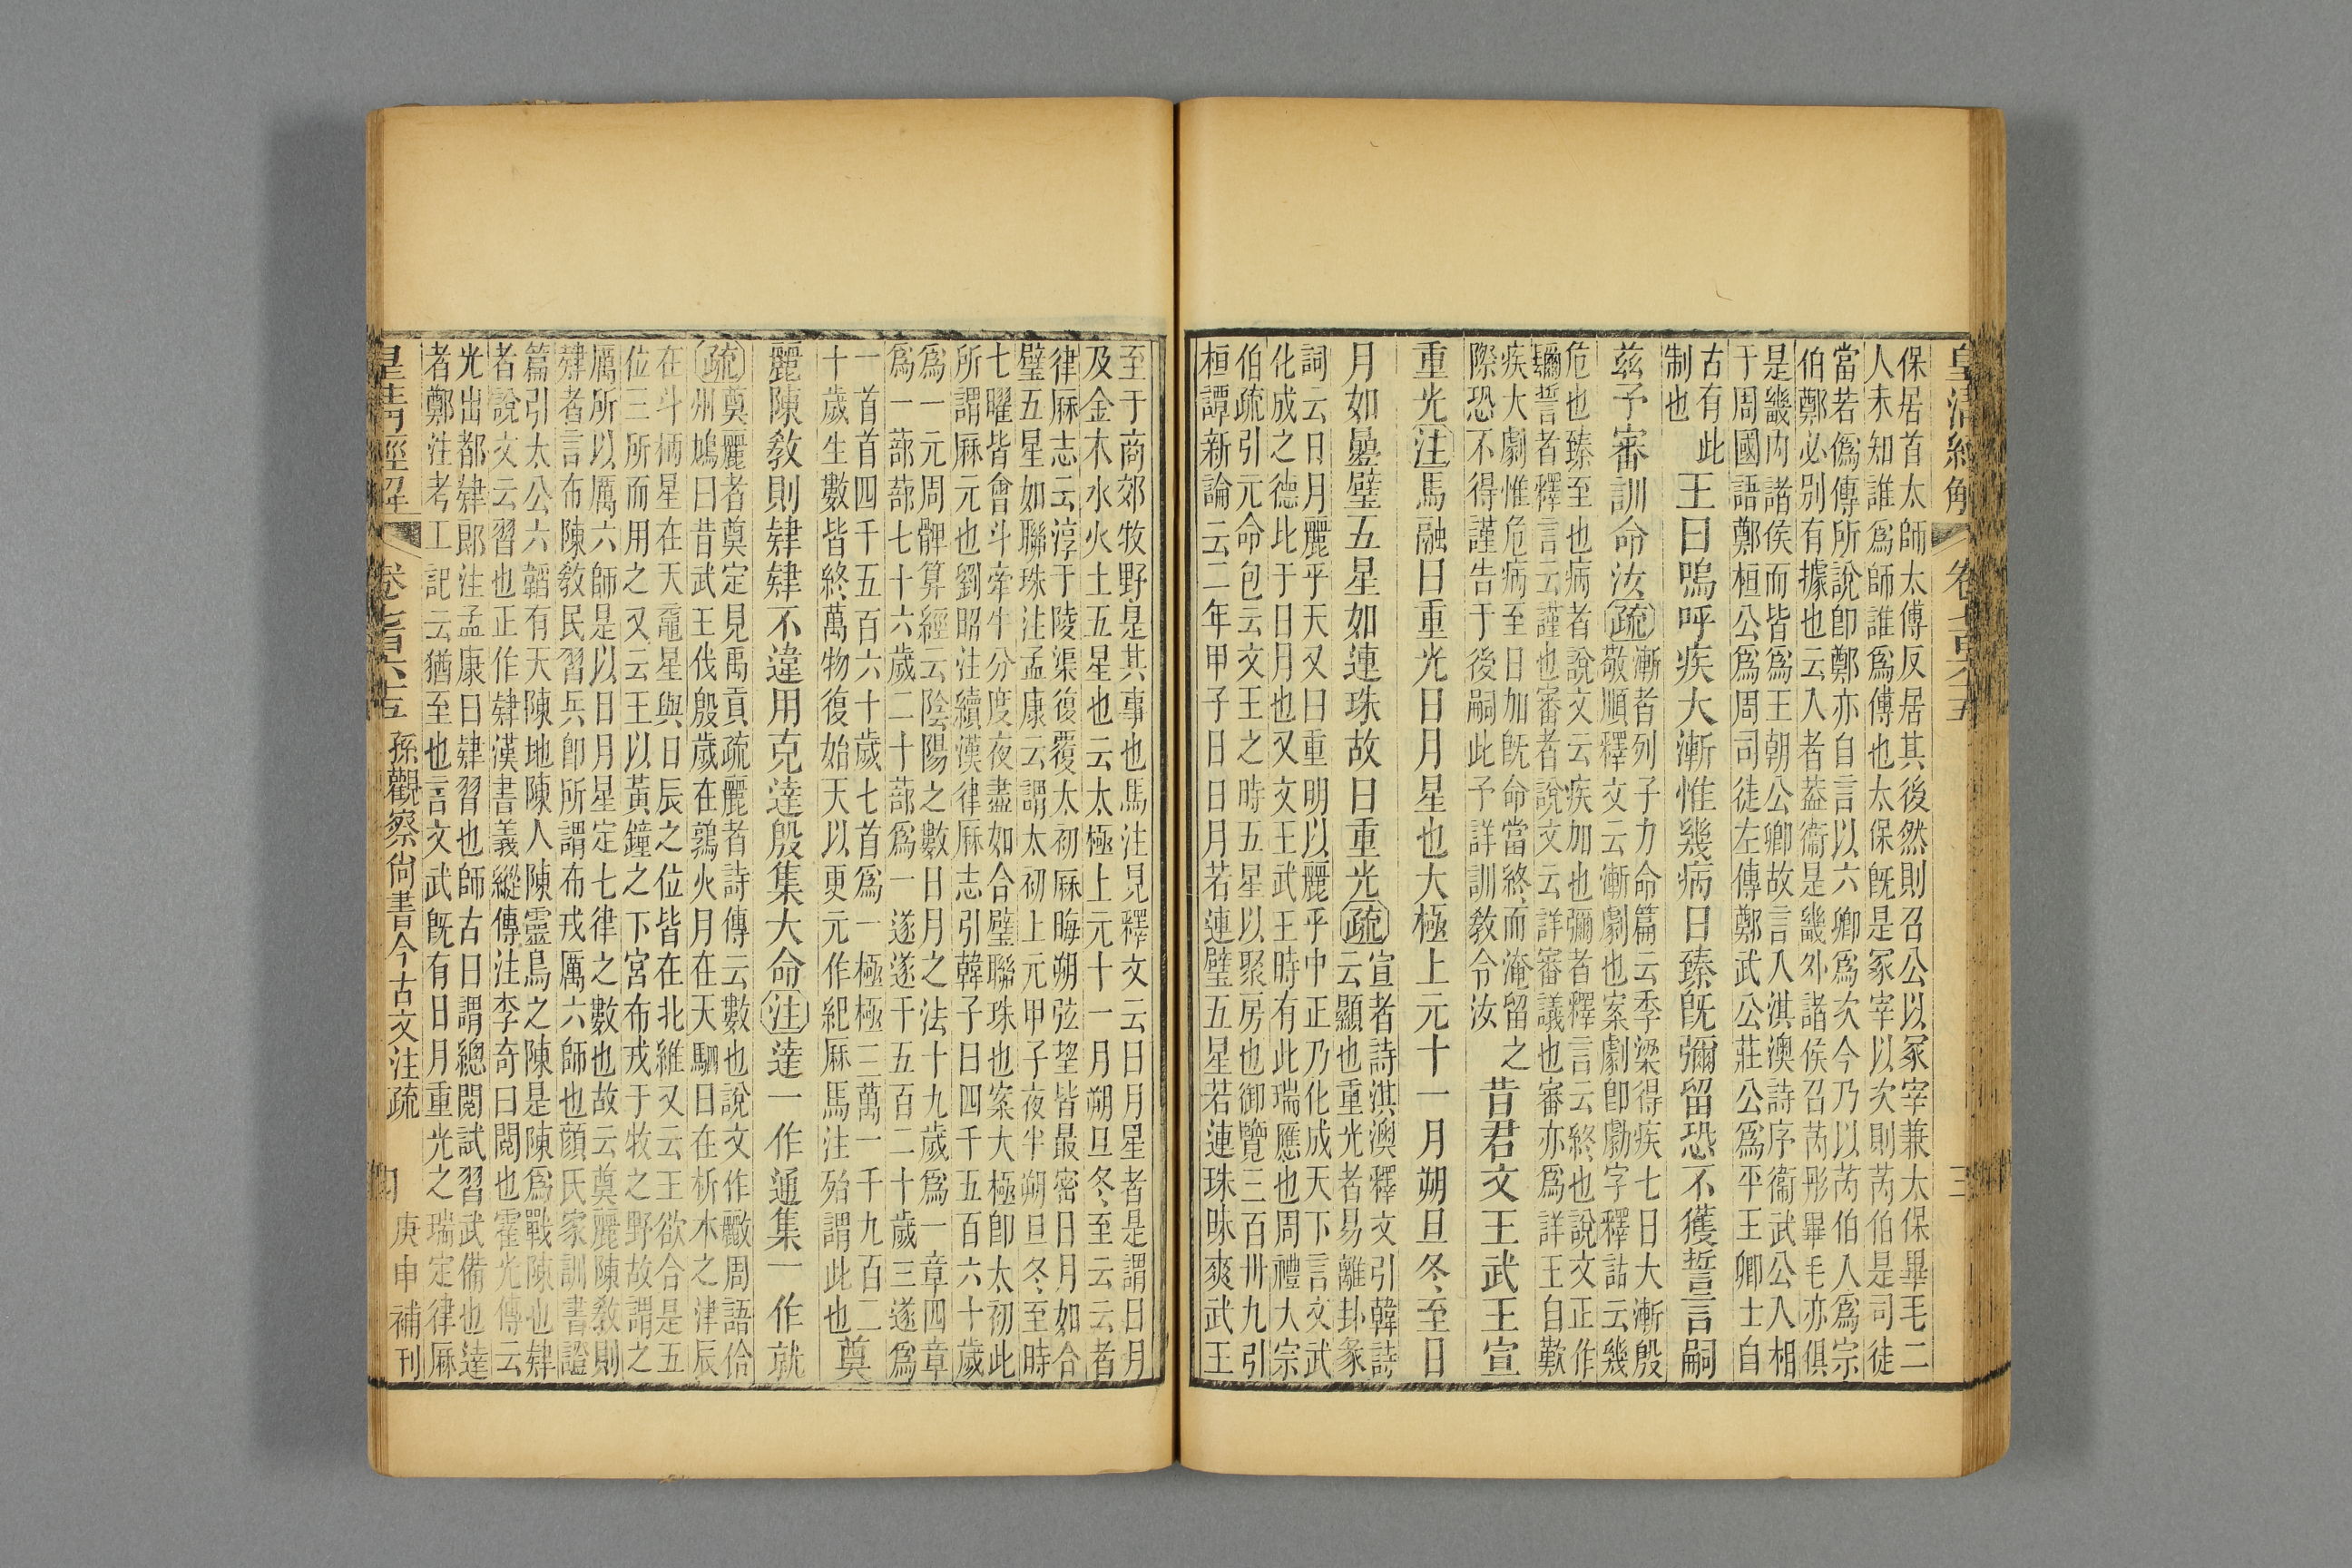 皇清經解
三
保居首太師太傅反居其後然則召公以冢宰兼太保畢毛二
人未知誰爲師誰爲傅也太保旣是冢宰以次則芮伯是司徒
當若僞傳所說卽鄭亦自言以六卿爲次今乃以芮伯入爲宗
伯鄭必別有據也云入者蓋衞是畿外諸侯召芮彤畢毛亦俱
是畿內諸侯而皆爲王朝公卿故言入淇澳詩序衞武公入相
于周國語鄭桓公爲周司徒左傳鄭武公莊公爲平王卿士自
古有此
制也
王曰嗚呼疾大漸惟幾病日臻旣彌留恐不獲誓言嗣
茲予審訓命汝疏
漸者列子力命篇云季梁得疾七日大漸殷
敬順釋文云漸劇也案劇卽勮字釋詁云幾
危也臻至也病者說文云疾加也彌者釋言云終也說文正作
镾誓者釋言云謹也審者說文云詳審議也審亦爲詳王自歎
疾大劇惟危病至日加旣命當終而淹留之
際恐不得謹告于後嗣此予詳訓敎令汝
昔君文王武王宣
重光注馬融曰重光日月星也大極上元十一月朔旦冬至日
月如曡璧五星如連珠故曰重光疏
宣者詩淇澳釋文引韓詩
云顯也重光者易離卦彖
詞云日月麗乎天又曰重明以麗乎中正乃化成天下言文武
化成之德比于日月也又文王武王時有此瑞應也周禮大宗
伯疏引元命包云文王之時五星以聚房也御覽三百卅九引
桓譚新論云二年甲子日日月若連璧五星若連珠昧爽武王
至于商郊牧野是其事也馬注見釋文云日月星者是謂日月
及金木水火土五星也云太極上元十一月朔旦冬至云云者
律厤志云淳于陵渠復覆太初厤晦朔弦朢皆最密日月如合
璧五星如聯珠注孟康云謂太初上元甲子夜半朔旦冬至時
七曜皆會斗牽牛分度夜盡如合璧聯珠也案大極卽太初此
所謂厤元也劉昭注續漢律厤志引韓子曰四千五百六十歲
爲一元周髀算經云陰陽之數日月之法十九歲爲一章四章
爲一蔀蔀七十六歲二十蔀爲一遂遂千五百二十歲三遂爲
一首首四千五百六十歲七首爲一極極三萬一千九百二
十歲生數皆終萬物復始天以更元作紀厤馬注殆謂此也
奠
麗陳敎則肄肄不違用克達殷集大命注達一作通集一作就
疏
奠麗者奠定見禹貢疏麗者詩傳云數也說文作䴡周語伶
州鳩曰昔武王伐殷歲在鶉火月在天駟日在析木之津辰
在斗柄星在天黿星與日辰之位皆在北維又云王欲合是五
位三所而用之又云王以黃鐘之下宮布戎于牧之野故謂之
厲所以厲六師是以日月星定七律之數也故云奠麗陳敎則
肄者言布陳敎民習兵卽所謂布戎厲六師也顔氏家訓書證
篇引太公六韜有天陳地陳人陳雲鳥之陳是陳爲戰陳也肄
者說文云習也正作肄漢書義縱傳注李奇曰閱也霍光傳云
光出都肄郎注孟康曰肄習也師古曰謂總閱試習武備也達
者鄭注考工記云猶至也言文武旣有日月重光之瑞定律厤
皇清經解
卷七百六十五
孫觀察尙書今古文注疏
四
庚申補刊